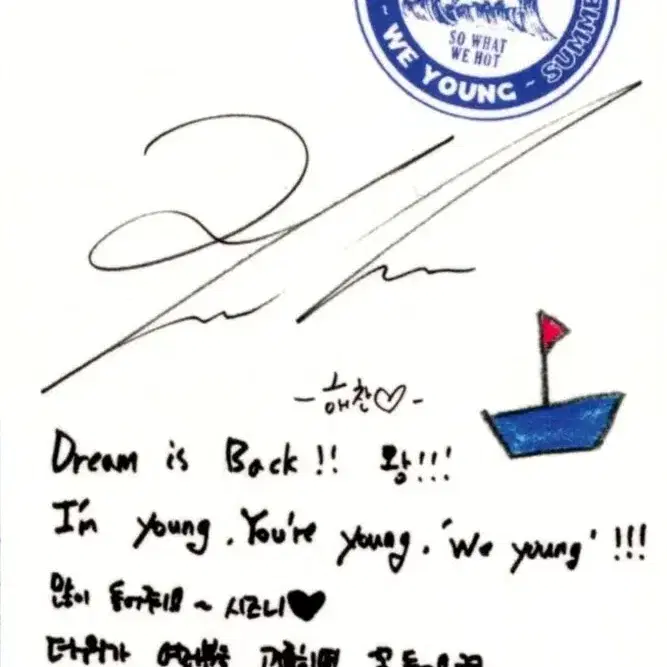 SO WHAT
WE HOT
~ WE YOUNG ~ SUMME
- 해찬♡ -
Dream is Back!! 왕!!!
I'm young. You're young. 'We young' !!!
많이 들어주세요 ~ 시즈니♥
더위가 여러분을